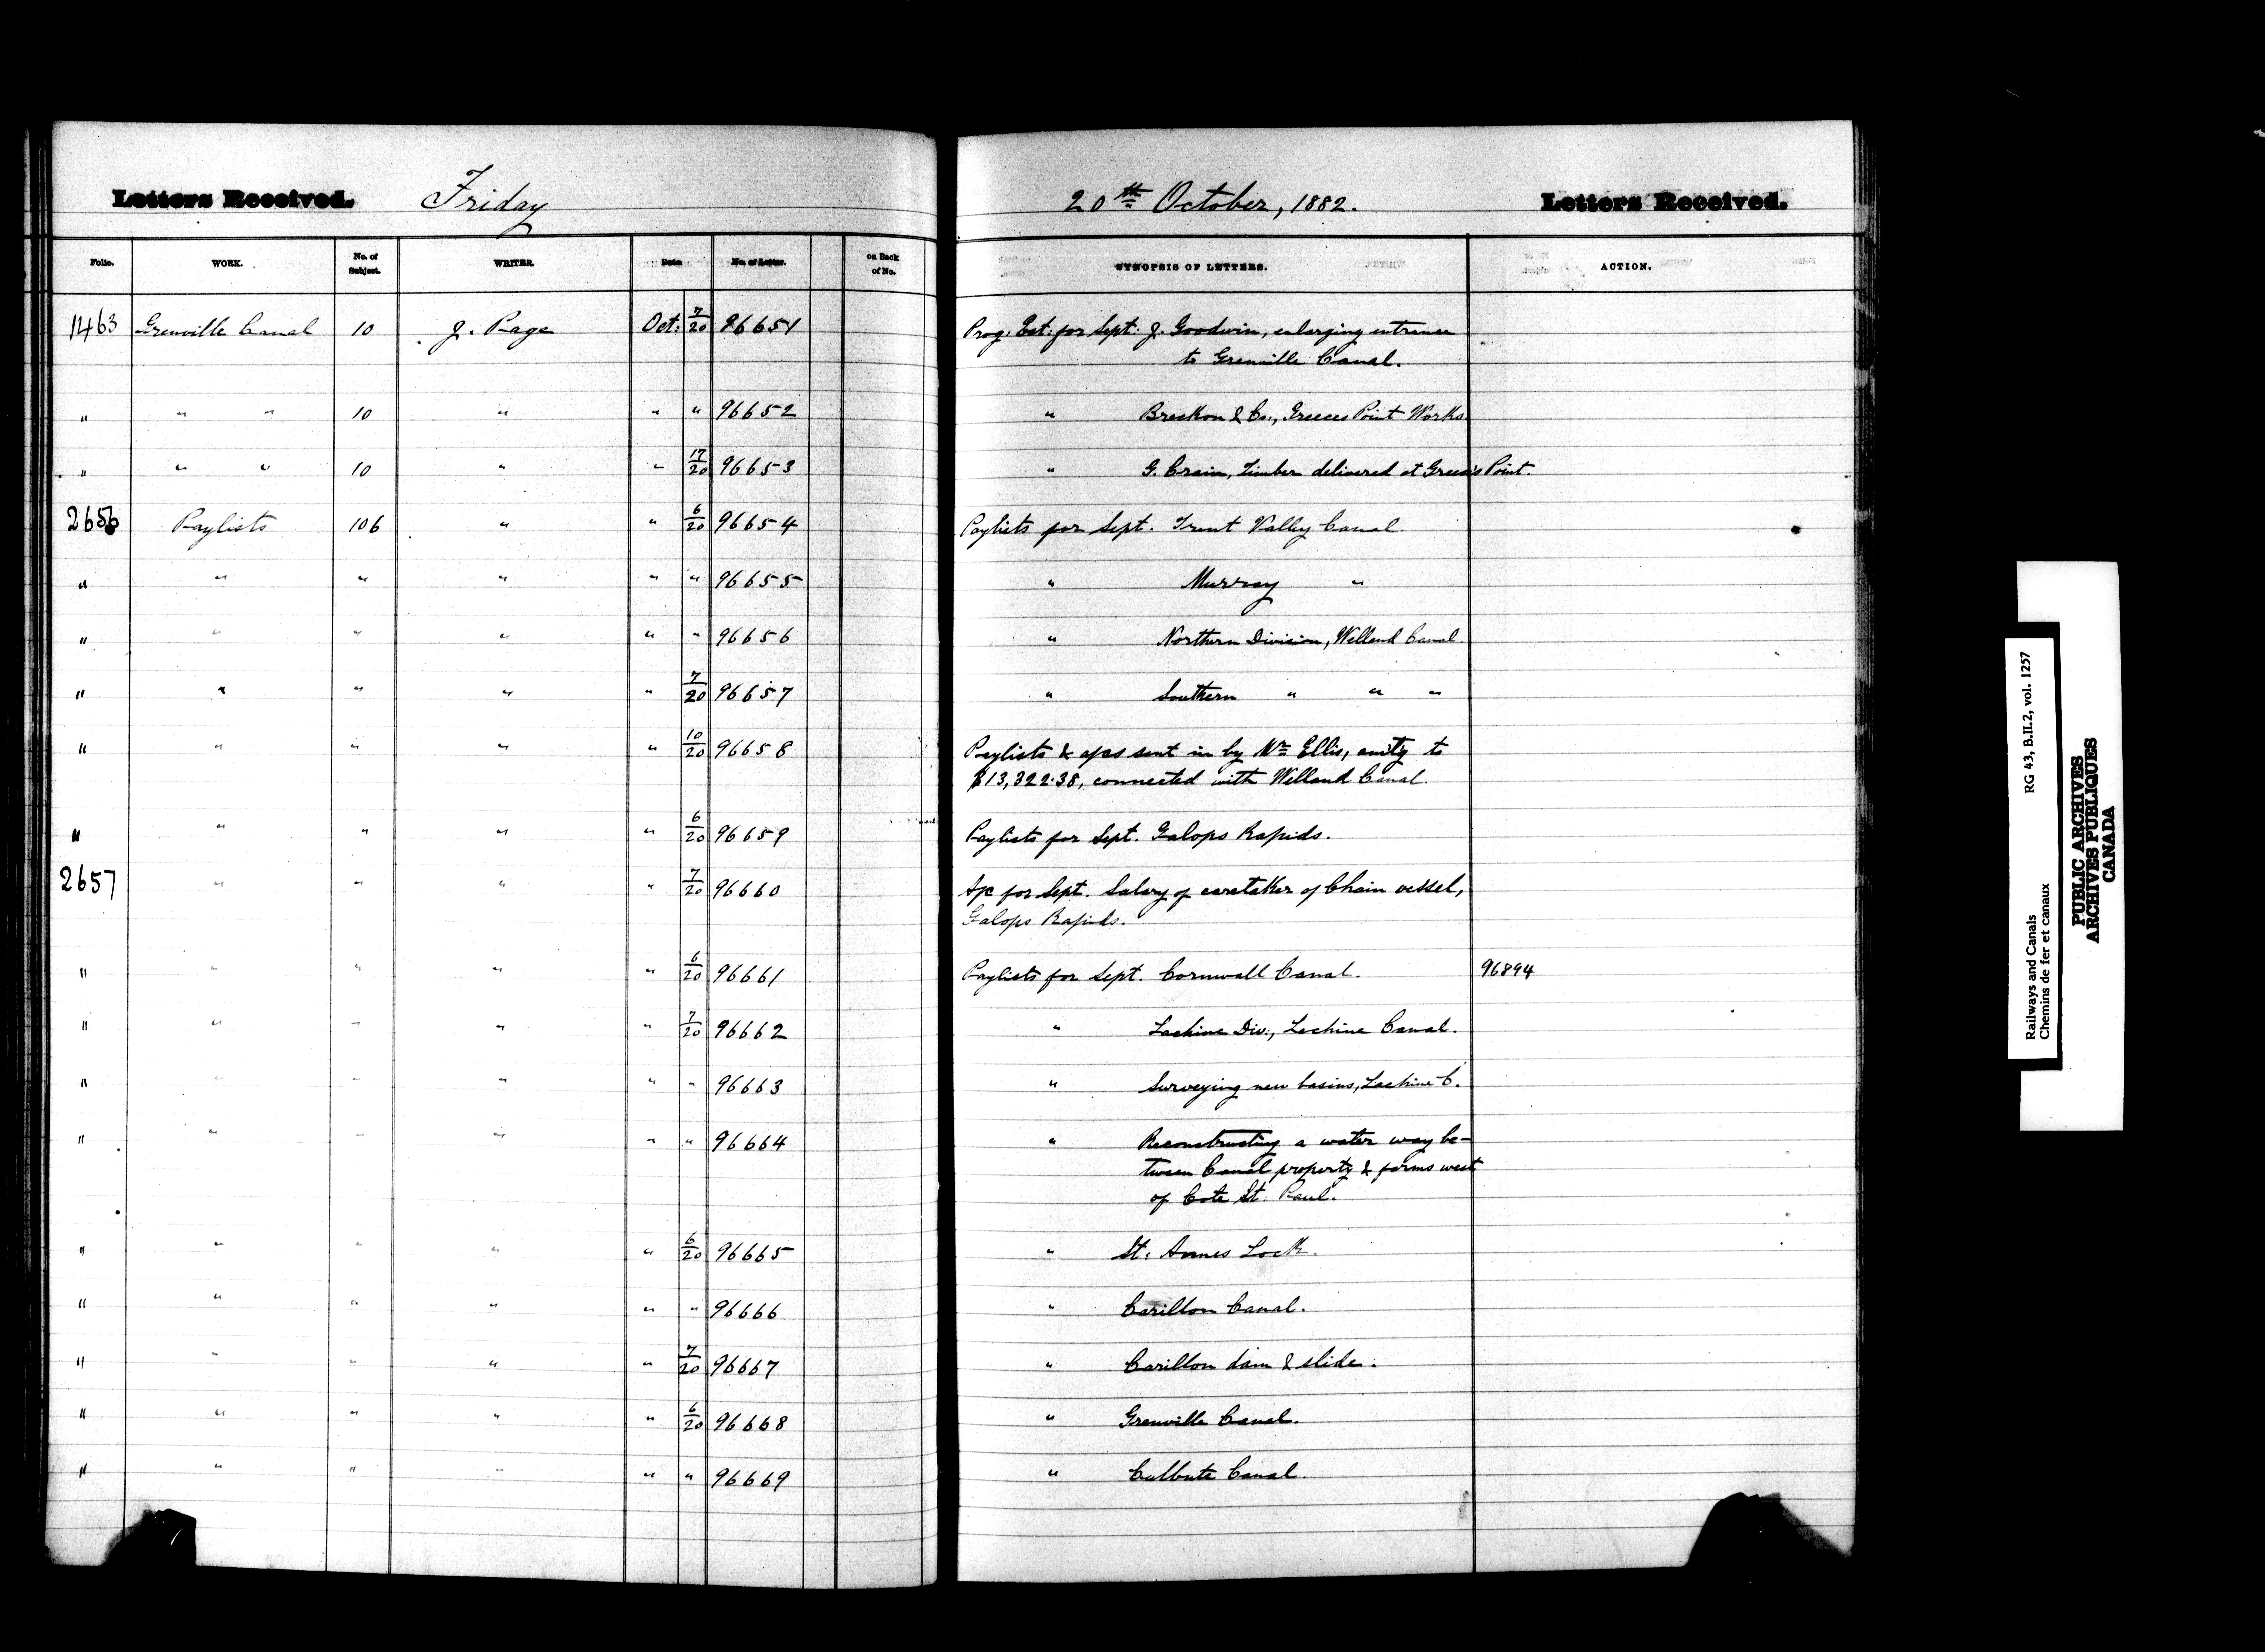 Letters Received. Friday 20th October, 1882. Letters Received.
Folio. WORK. No. of Subject. WRITER. Date No. of Letter. on Back of No. SYNOPSIS OF LETTERS. ACTION.
1463 Grenville Canal 10 J. Page Oct: 7/20 96651 Prog: Est: for Sept: J. Goodwin, enlarging entrance
to Grenville Canal.
" " " 10 " " " 96652 " Breckon & Co., Greeces Point Works.
" " " 10 " " 17/20 96653 " G. Crain, timber delivered at Greece's Point.
2656 Paylists 106 " " 6/20 96654 Paylists for Sept. Trent Valley Canal.
" " " " " " 96655 " Murray "
" " " " " " 96656 " Northern Division, Welland Canal.
" " " " " 7/20 96657 " Southern " " "
" " " " " 10/20 96658 Paylists & a/cs sent in by Mr Ellis, amtg to
$13,322.38, connected with Welland Canal.
" " " " " 6/20 96659 Paylists for Sept. Galops Rapids.
2657 " " " " 7/20 96660 A/c for Sept. Salary of caretaker of Chain vessel,
Galops Rapids.
" " " " " 6/20 96661 Paylists for Sept. Cornwall Canal. 96894
" " " " " 7/20 96662 " Lachine Div., Lachine Canal.
" " " " " " 96663 " Surveying new basins, Lachine C.
" " " " " " 96664 " Reconstructing a water way be-
tween Canal property & farms west
of Cote St. Paul.
" " " " " 6/20 96665 " St. Annes Lock.
" " " " " " 96666 " Carillon Canal.
" " " " " 7/20 96667 " Carillon dam & slide.
" " " " " 6/20 96668 " Grenville Canal.
" " " " " " 96669 " Culbute Canal.
Railways and Canals RG 43, B.II.2, vol. 1257
Chemins de fer et canaux
PUBLIC ARCHIVES
ARCHIVES PUBLIQUES
CANADA